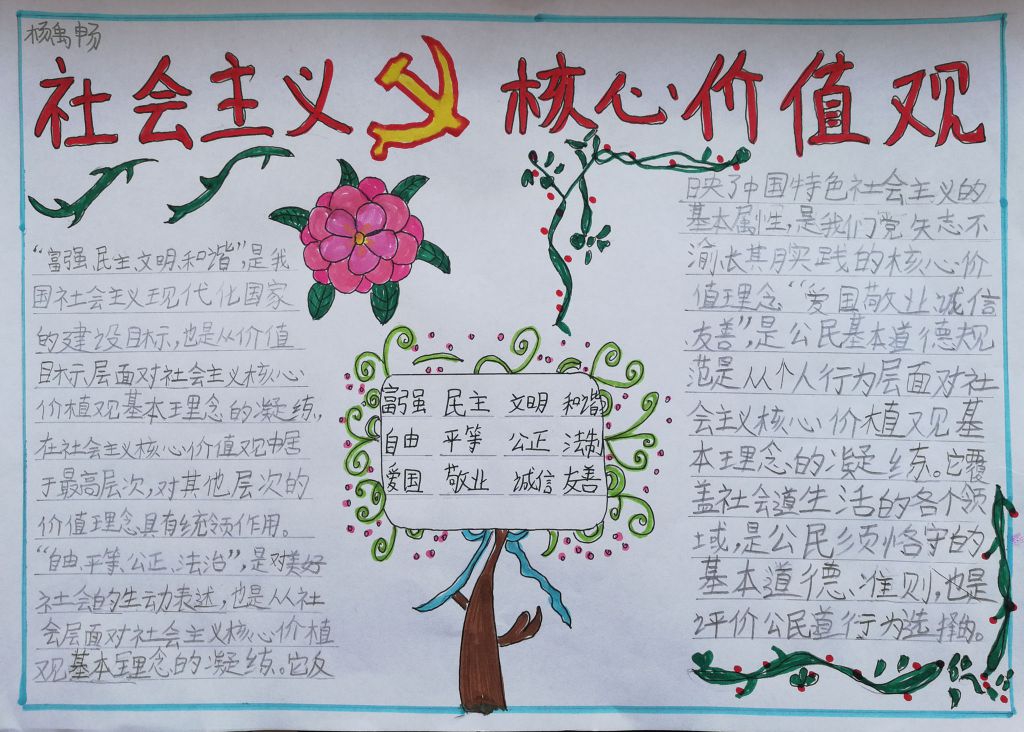 杨禹畅
社会主义 核心价值观
“富强、民主、文明、和谐”，是我
国社会主义现代化国家
的建设目标，也是从价值
目标层面对社会主义核心
价植观基本理念的凝练，
在社会主义核心价值观中居
于最高层次，对其他层次的
价值理念具有统领作用。
“自由、平等、公正、法治”，是对美好
社会的生动表述，也是从社
会层面对社会主义核心价植
观基本理念的凝练。它反
富强 民主 文明 和谐
自由 平等 公正 法制
爱国 敬业 诚信 友善
映了中国特色社会主义的
基本属性，是我们党矢志不
渝长其月实践的核心价
值理念“爱国敬业、诚信
、友善”，是公民基本道德规
范是从个人行为层面对社
会主义核心价植观基
本理念的凝练。它覆
盖社会道生活的各个领
域，是公民须恪守的
基本道德、准则，也是
评价公民道行为选择的。